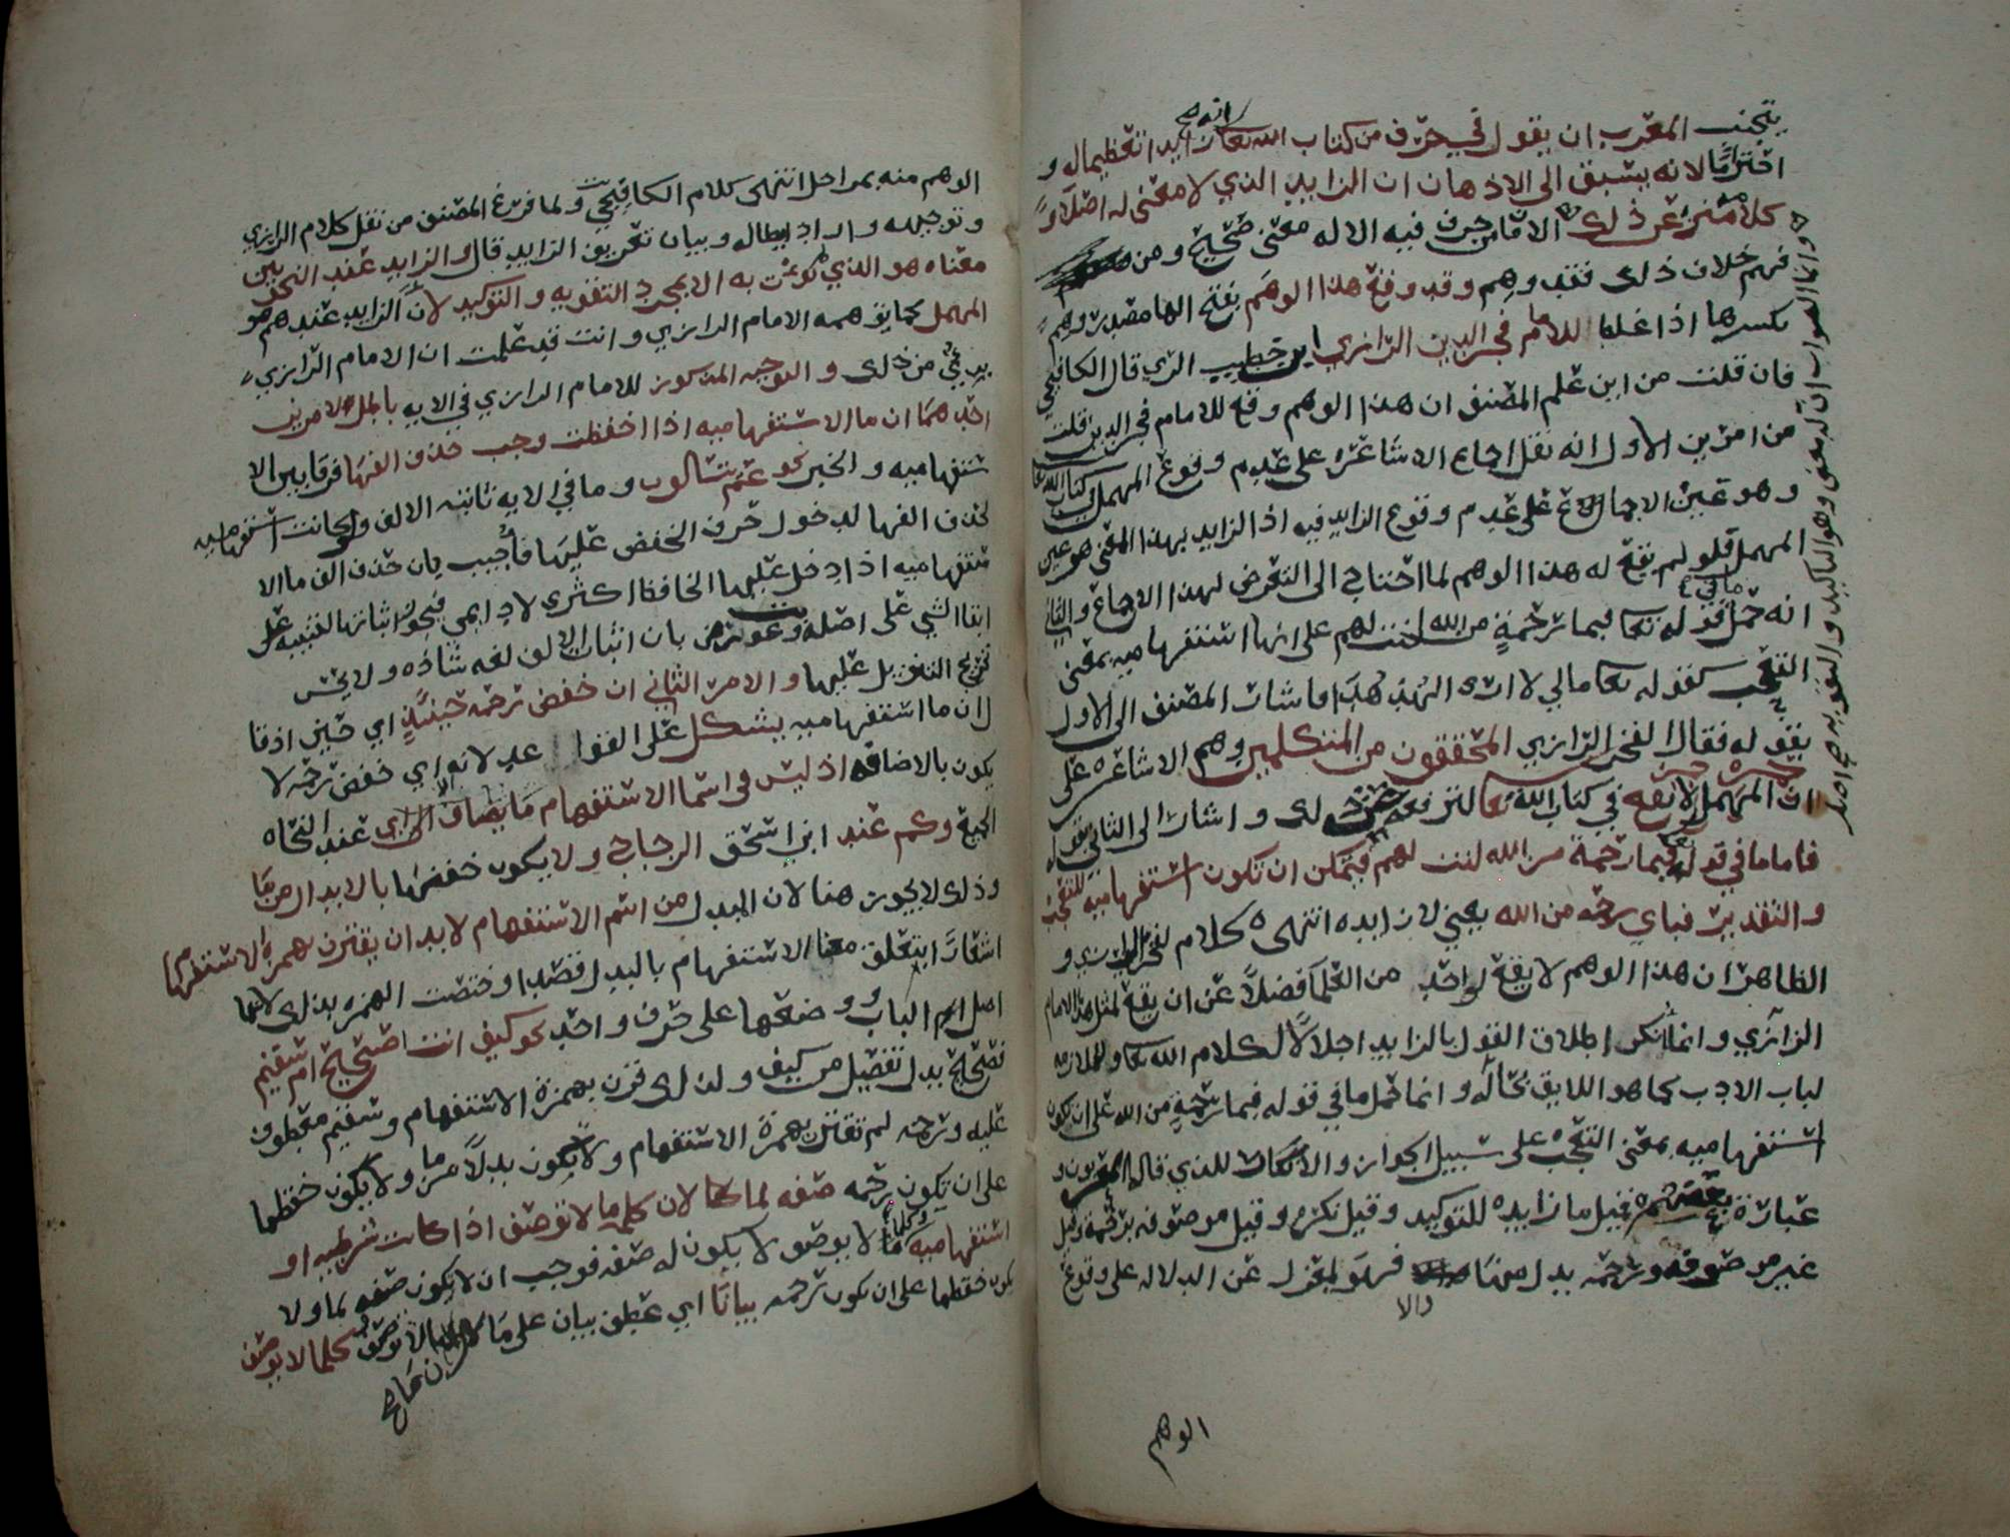 يتجنب المعرب ان يقول في حرف من كتاب الله تعالى انه زايد تعظيما له و
احتراما لانه يسبق الى الاذهان ان الزايد الذي لا معنى له اصلا و
كلامه منزه عن ذلك الا ما من حرف فيه الا له معنى صحيح ومن
فهم خلاف ذلك فقد وهم وقد وقع هذا الوهم بفتح الها مصدر وهم
بكسرها اذا غلط للامام فخر الدين الرازي ابن خطيب الري قال الكافيجي
فان قلت من اين علم المصنف ان هذا الوهم وقع للامام فخر الدين قلت
من امرين الاول انه نقل اجماع الاشاعره على عدم وقوع المهمل في كتاب الله تعا
وهو عين الاجماع على عدم وقوع الزايد فيه اذ الزايد بهذا المعنى هو عين
المهمل فلو لم يقع له هذا الوهم لما احتاج الى التعرض لهذا الاجماع والثاني
انه حمل ما في قوله تعا فبما رحمة من الله لنت لهم على انها استفهاميه بمعنى
التعجب كقوله تعا مالي لا ارى الهدهد فاشار المصنف الى الاول
بقوله فقال الفخر الرازي المحققون من المتكلمين وهم الاشاعره على
ان المهمل لا يقع في كتاب الله تعا لترفعه عن ذلك واشار الى الثاني بقوله
فاما ما في قوله فبما رحمة من الله لنت لهم فيمكن ان تكون استفهاميه للتعجب
والتقدير فباي رحمه من الله يعني لا زايده انتهى كلام الفخر الرازي و
الظاهر ان هذا الوهم لا يقع لواحد من العلما فضلا عن ان يقع لمثل هذا الامام
الرازي وانما انكر اطلاق القول بالزايد اجلالا لكلام الله تعا وللملازمه
لباب الادب كما هو اللايق بحاله وانما حمل ما في قوله فبما رحمة من الله على ان تكون
استفهاميه بمعنى التعجب على سبيل الجواز والامكان للذي قاله المعربون و
عبارة بعضهم قيل ما زايده للتوكيد وقيل نكره وقيل موصوفه برحمة وقيل
غير موصوفه ورحمه بدل منها فهو بمعزل عن الدلاله على وقوع
والا
الوهم
وانما الصواب ان له معنى وهو التاكيد والتقويه صح اصل
الوهم منه بمراحل انتهى كلام الكافيجي ولما فرغ المصنف من نقل كلام الرازي
وتوجيهه واراد ابطاله وبيان تعريف الزايد قال والزايد عند النحويين
معناه هو الذي لم يوت به الا لمجرد التقويه والتوكيد لان الزايد عندهم هو
المهمل كما يوهمه الامام الرازي وانت قد علمت ان الامام الرازي
بريء من ذلك والتوجيه المذكور للامام الرازي في الايه باطل لامرين
احدهما ان ما الاستفهاميه اذا خفضت وجب حذف الفها فرقا بين الا
ستفهاميه والخبر نحو عم يتسالون وما في الايه ثابته الالف ولو كانت استفهاميه
لحذف الفها لدخول حرف الخفض عليها فاجيب بان حذف الف ما الا
ستفهاميه اذا دخل عليها الخافض اكثري لا دايمي فيجوز اثباتها للتنبيه على
ابقا الشي على اصله وعورض بان اثبات الالف لغه شاذه ولا يحسن
تخريج التنزيل عليها والامر الثاني ان خفض رحمه حينئذ اي حين اذ قا
ل ان ما استفهاميه يشكل على القواعد لانه اي خفض رحمه لا
يكون بالاضافه اذ ليس في اسما الاستفهام ما يضاف الا اي عند النحاه
الجميع وكم عند ابن اسحق الزجاج ولا يكون خفضها بالابدال من ما
وذلك لا يجوز هنا لان المبدل من اسم الاستفهام لا بد ان يقترن بهمزة الاستفهام
اشعارا بتعلق معنا الاستفهام بالبدل قصدا وخصت الهمزه بذلك لانها
اصل الباب ووضعها على حرف واحد نحو كيف انت اصحيح ام سقيم
فصحيح بدل تفصيل من كيف ولذلك قرن بهمزة الاستفهام وسقيم معطوف
عليه ورحمه لم تقترن بهمزة الاستفهام ولا يكون بدلا من ما ولا يكون خفضها
على ان يكون رحمه صفه لما كا لان كلمه ما لا توصف اذا كانت شرطيه او
استفهاميه وكلما لا يوصف لا يكون له صفه فوجب ان لا يكون صفه لما ولا
يكون خفضها على ان يكون رحمه بيانا اي عطف بيان على ما لان ما لا توصف وكلما لا يوصف